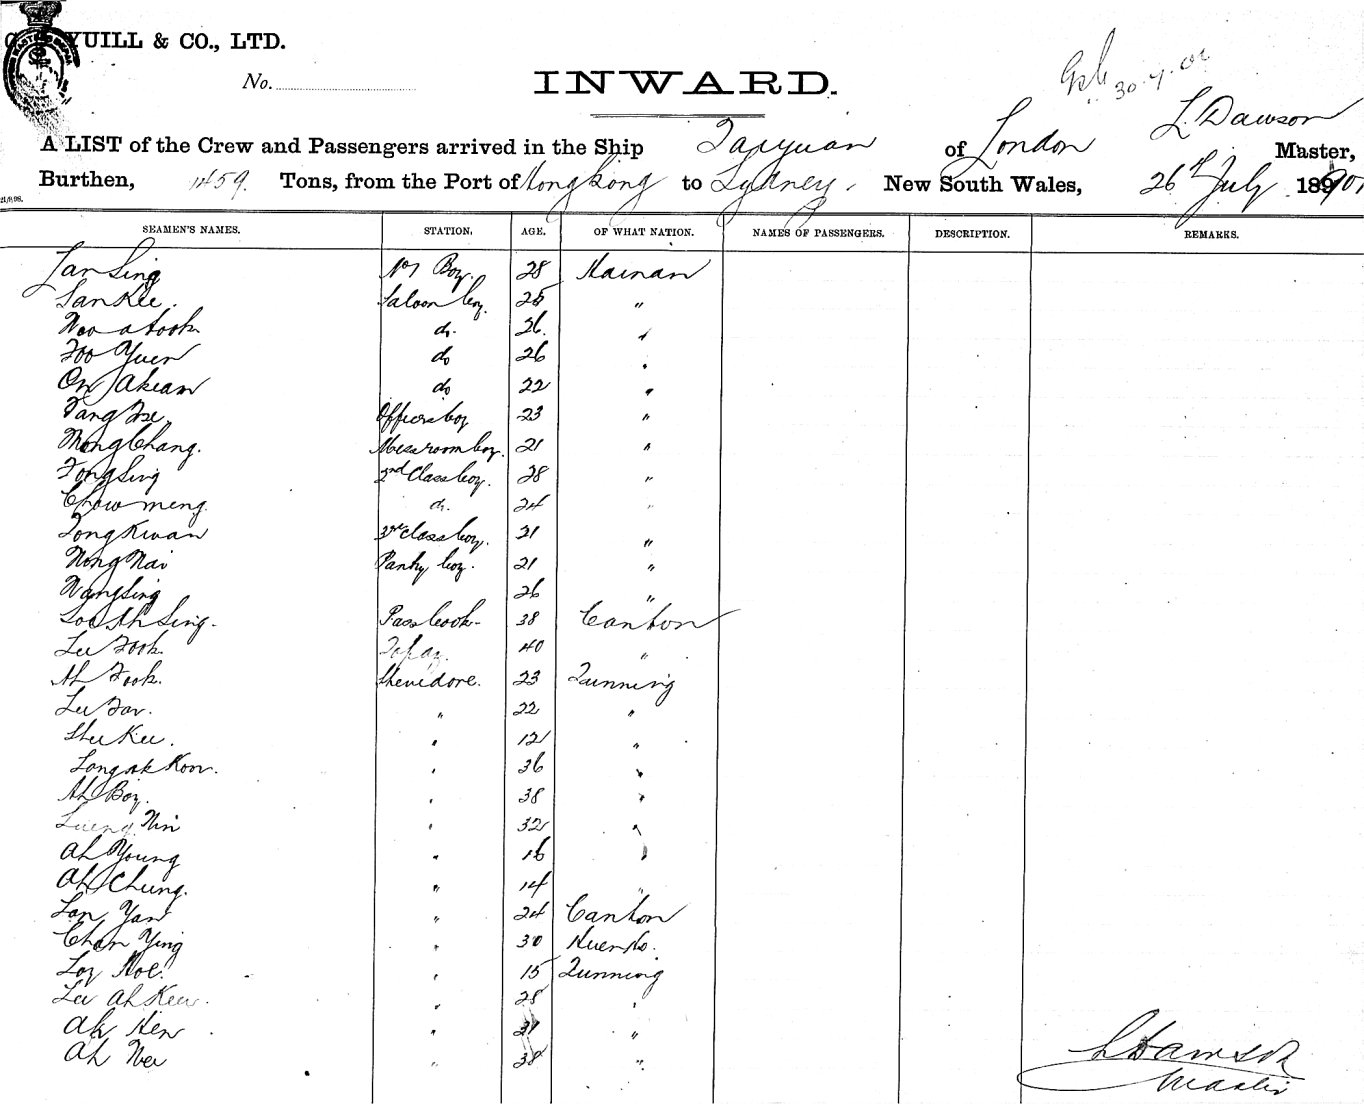 YUILL & CO., LTD.
No.
INWARD.
30.7.01
L Dawson
A LIST of the Crew and Passengers arrived in the Ship Taiyuan of London Master,
Burthen, 1459. Tons, from the Port of Hongkong to Sydney, New South Wales, 26th July 1901
SEAMEN'S NAMES. STATION, AGE. OF WHAT NATION. NAMES OF PASSENGERS. DESCRIPTION. REMARKS.
Lan Sing No 1 Boy. 28 Hainan
San Kee. Saloon boy. 25 "
Woo a Look do. 26. "
Foo Yuen do 26 "
On Akean do 22 "
Tang Fse. Officers boy 23 "
Mong Chang. Messroom boy. 21 "
Fong Sing 2nd Class boy. 28 "
Chow meng. do. 24 "
Tong Kwan 3rd class boy. 21 "
Wong Nai Pantry boy. 21 "
Wang Sing 26 "
Loo Ah Sing. Pass Cook 38 Canton
Lee Fook. Topaz. 40 "
Ah Fook. Stevidore. 23 Tunning
Lee For. " 22 "
Shee Kee. " 12 "
Long ak Koon. " 36 "
Ah Boy. " 38 "
Lueng Nin " 32 "
Ah Young " 16 "
Ah Chung. " 14 "
Lan Yan " 24 Canton
Chan Ying " 30
Loy Hoe. " 15 Tunning
Lee Ah Keu. " 28 "
Ah Hen " "
Ah Wee " 38 "
L Dawson
Master